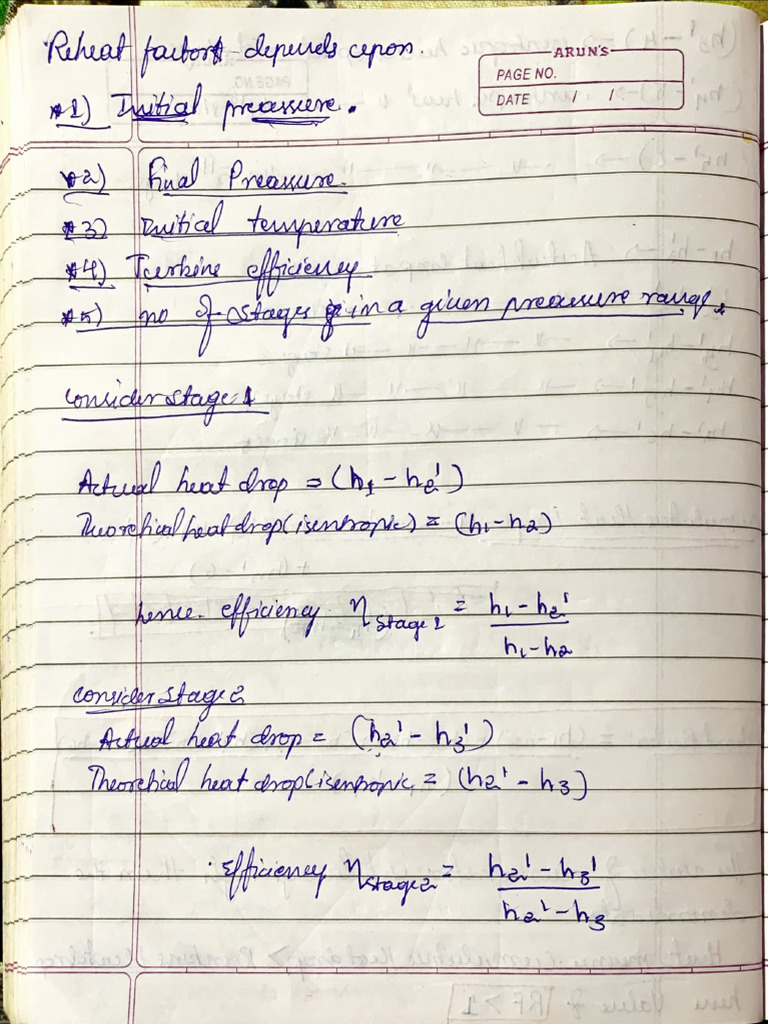 Reheat factor depends upon.
ARUN'S
PAGE NO.
DATE / /
*1) Initial preassure.
*2) Final Preassure.
*3) Initial temperature
*4) Turbine efficiency
*5) no of stages in a given preassure range.
Consider stage-1
Actual heat drop = (h1 - h2')
Theoretical heat drop (isentropic) = (h1 - h2)
hence. efficiency η stage1 = h1 - h2' / h1 - h2
Consider stage 2
Actual heat drop = (h2' - h3')
Theoretical heat drop (isentropic = (h2' - h3)
Efficiency η stage2 = h2' - h3' / h2' - h3